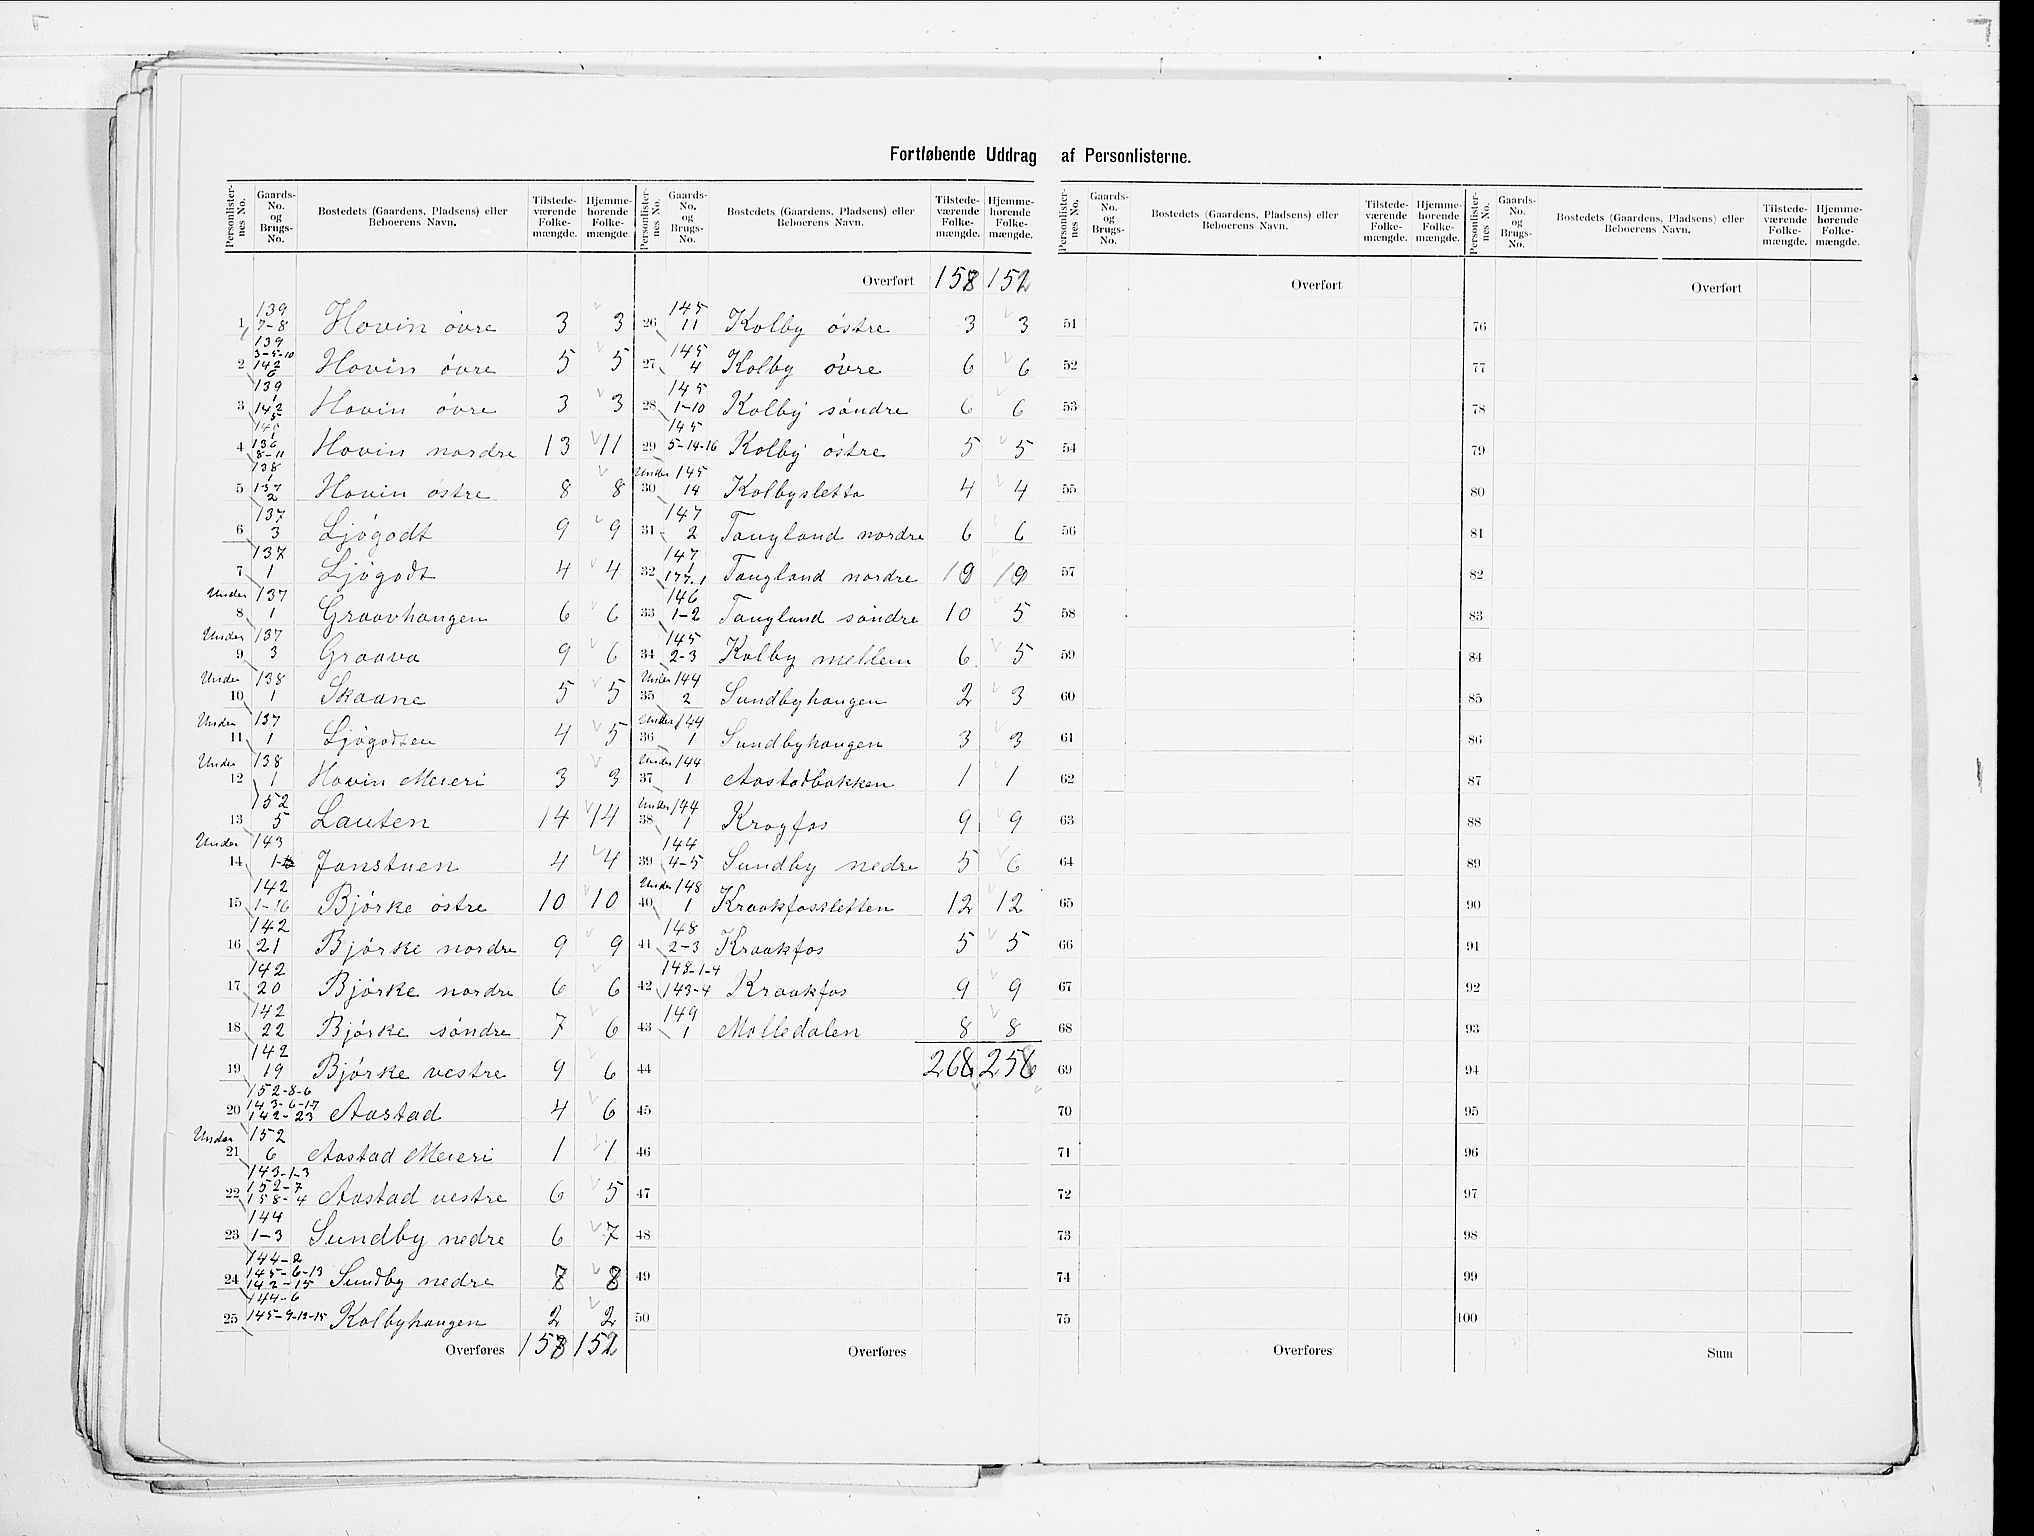 Fortløbende Uddrag af Personlisterne.
Personlister-nes No. | Gaards-No. og Brugs-No. | Bostedets (Gaardens, Pladsens) eller Beboerens Navn. | Tilstede-værende Folke-mængde. | Hjemme-hørende Folke-mængde.
1 | 139 7-8 | Hovin övre | 3 | 3
2 | 139 3-5-10 142 6 | Hovin övre | 5 | 5
3 | 139 1 142 5 | Hovin övre | 3 | 3
4 | 140 1 136 8-11 | Hovin nordre | 13 | 11
5 | 138 1 137 2 | Hovin östre | 8 | 8
6 | 137 3 | Ljögodt | 9 | 9
7 | 137 1 | Ljögodt | 4 | 4
8 | Under 137 1 | Graavhaugen | 6 | 6
9 | Under 137 3 | Graava | 9 | 6
10 | Under 138 1 | Skaane | 5 | 5
11 | Under 137 1 | Ljögodten | 4 | 5
12 | Under 138 1 | Hovin Meieri | 3 | 3
13 | 152 5 | Lauten | 14 | 14
14 | Under 143 | Jonstuen | 4 | 4
15 | 142 1-16 | Bjørke østre | 10 | 10
16 | 142 21 | Bjørke nordre | 9 | 9
17 | 142 20 | Bjørke nordre | 6 | 6
18 | 142 22 | Bjørke søndre | 7 | 6
19 | 142 19 | Bjørke vestre | 9 | 6
20 | 152-8-6 143-6-1-7 142-23 | Aastad | 4 | 6
21 | Under 152 6 | Aastad Meieri | 1 | 1
22 | 143-1-3 152-7 158-4 | Aastad vestre | 6 | 5
23 | 144 1-3 | Sundby nedre | 6 | 7
24 | 144-2 145-6-13 142-15 | Sundby nedre | | 8
25 | 144-6 145-9-12-15 | Kolbyhaugen | 2 | 2
Overføres | 158 | 152
Personlister-nes No. | Gaards-No. og Brugs-No. | Bostedets (Gaardens, Pladsens) eller Beboerens Navn. | Tilstede-værende Folke-mængde. | Hjemme-hørende Folke-mængde.
Overført | 158 | 152
26 | 145 11 | Kolby östre | 3 | 3
27 | 145 4 | Kolby övre | 6 | 6
28 | 145 1-10 | Kolby söndre | 6 | 6
29 | 145 5-14-16 | Kolby östre | 5 | 5
30 | Under 145 14 | Kolbysletta | 4 | 4
31 | 147 2 | Taugland nordre | 6 | 6
32 | 147 1 177.1 | Taugland nordre | 19 | 19
33 | 146 1-2 | Taugland søndre | 10 | 5
34 | 145 2-3 | Kolby mellem | 6 | 5
35 | Under 144 2 | Sundbyhaugen | 2 | 3
36 | Under 144 1 | Sundbyhaugen | 3 | 3
37 | Under 144 1 | Aastadbakken | 1 | 1
38 | Under 144 1 | Krogfos | 9 | 9
39 | 144 4-5 | Sundby nedre | 5 | 6
40 | Under 148 1 | Kraakfossletten | 12 | 12
41 | 148 2-3 | Kraakfos | 5 | 5
42 | 148-1-4 143-4 | Kraakfos | 9 | 9
43 | 149 1 | Molledalen | 8 | 8
44 | 268 | 258
45
46
47
48
49
50
Overføres
Personlister-nes No. | Gaards-No. og Brugs-No. | Bostedets (Gaardens, Pladsens) eller Beboerens Navn. | Tilstede-værende Folke-mængde. | Hjemme-hørende Folke-mængde.
Overført
51
52
53
54
55
56
57
58
59
60
61
62
63
64
65
66
67
68
69
70
71
72
73
74
75
Overføres
Personlister-nes No. | Gaards-No. og Brugs-No. | Bostedets (Gaardens, Pladsens) eller Beboerens Navn. | Tilstede-værende Folke-mængde. | Hjemme-hørende Folke-mængde.
Overført
76
77
78
79
80
81
82
83
84
85
86
87
88
89
90
91
92
93
94
95
96
97
98
99
100
Sum